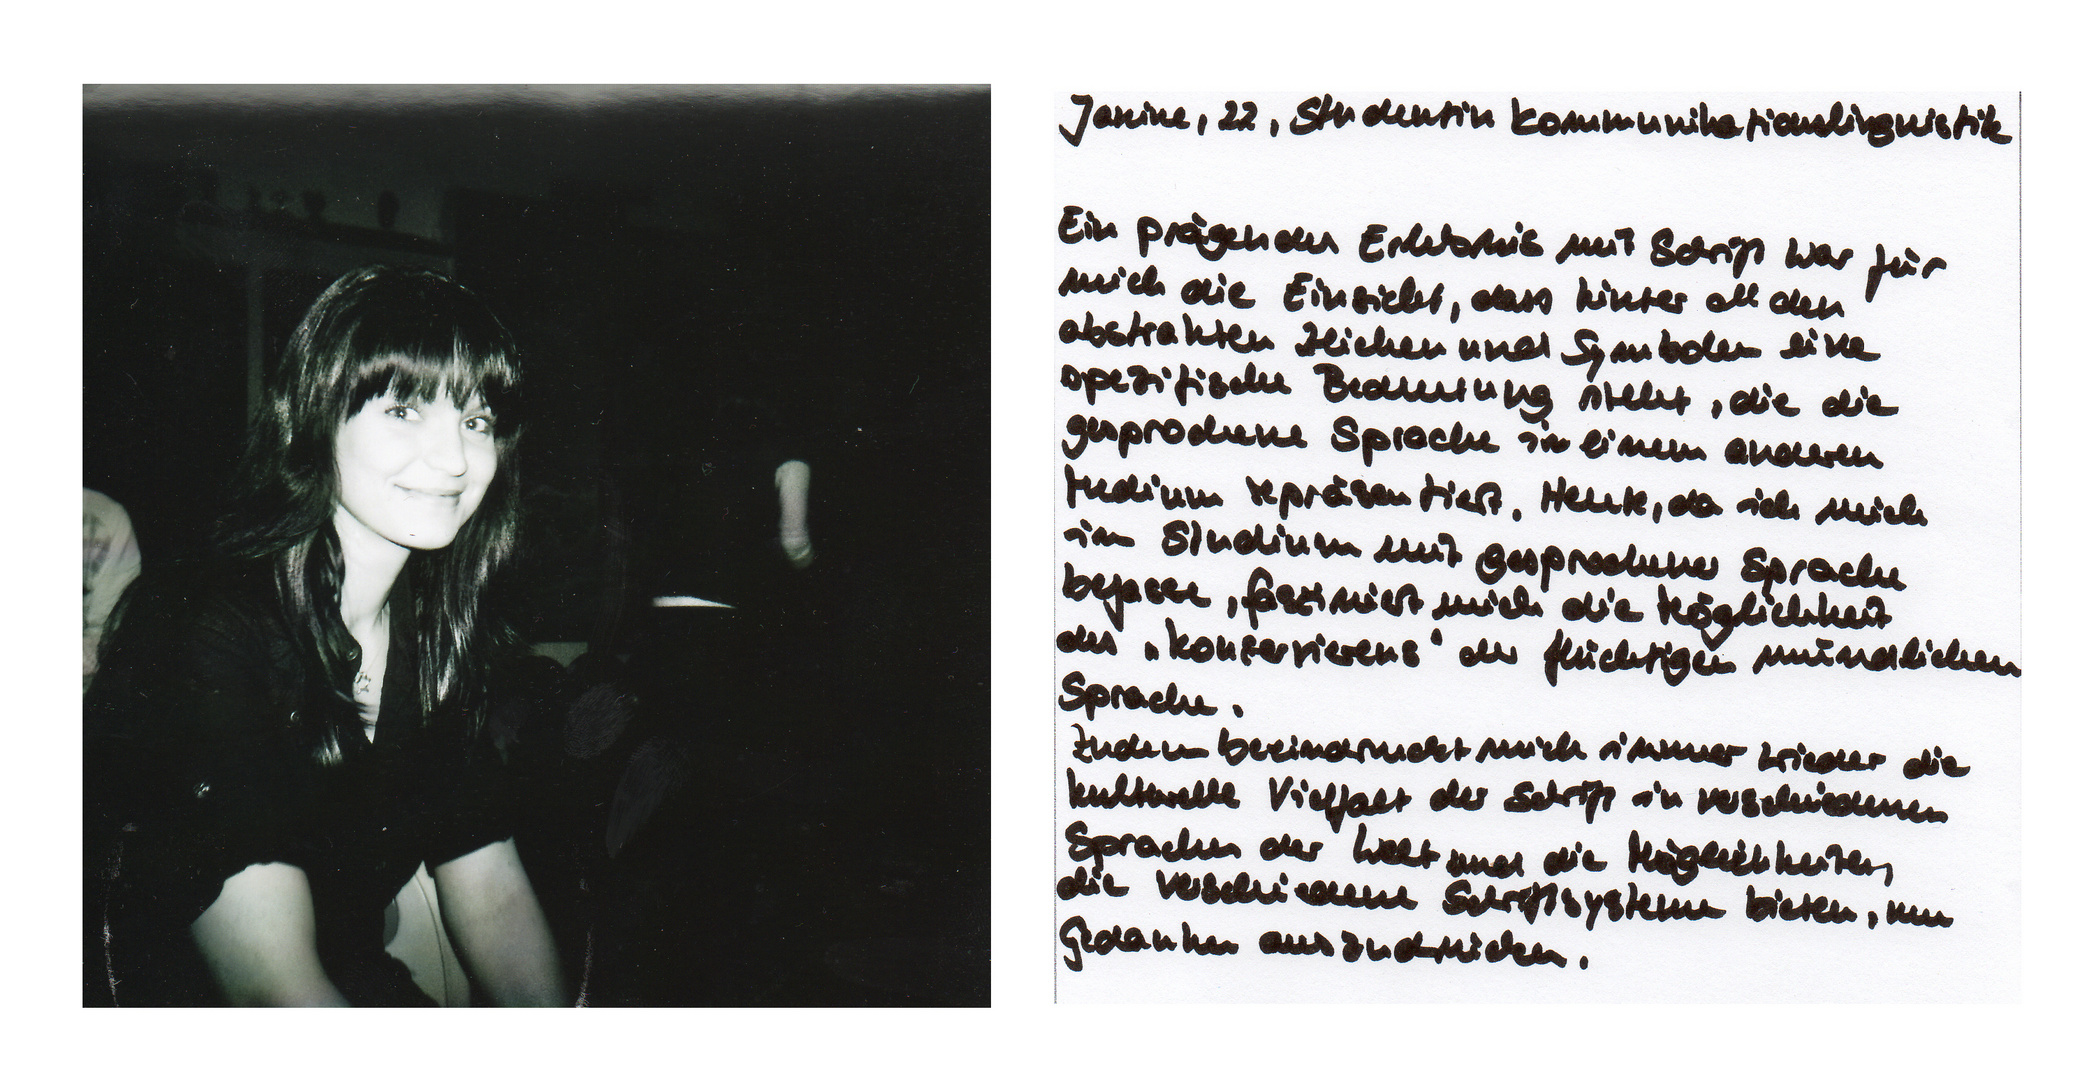 Janine, 22, Studentin Kommunikationslinguistik
Ein prägendes Erlebnis mit Schrift war für
mich die Einsicht, dass hinter all den
abstrakten Zeichen und Symbolen eine
spezifische Bedeutung steht, die die
gesprochene Sprache in einem anderen
Medium repräsentiert. Heute, da ich mich
im Studium mit gesprochener Sprache
befasse, fasziniert mich die Möglichkeit
des „Konservierens“ der flüchtigen mündlichen
Sprache.
Zudem beeindruckt mich immer wieder die
kulturelle Vielfalt der Schrift in verschiedenen
Sprachen der Welt und die Möglichkeiten,
die verschiedene Schriftsysteme bieten, um
Gedanken auszudrücken.